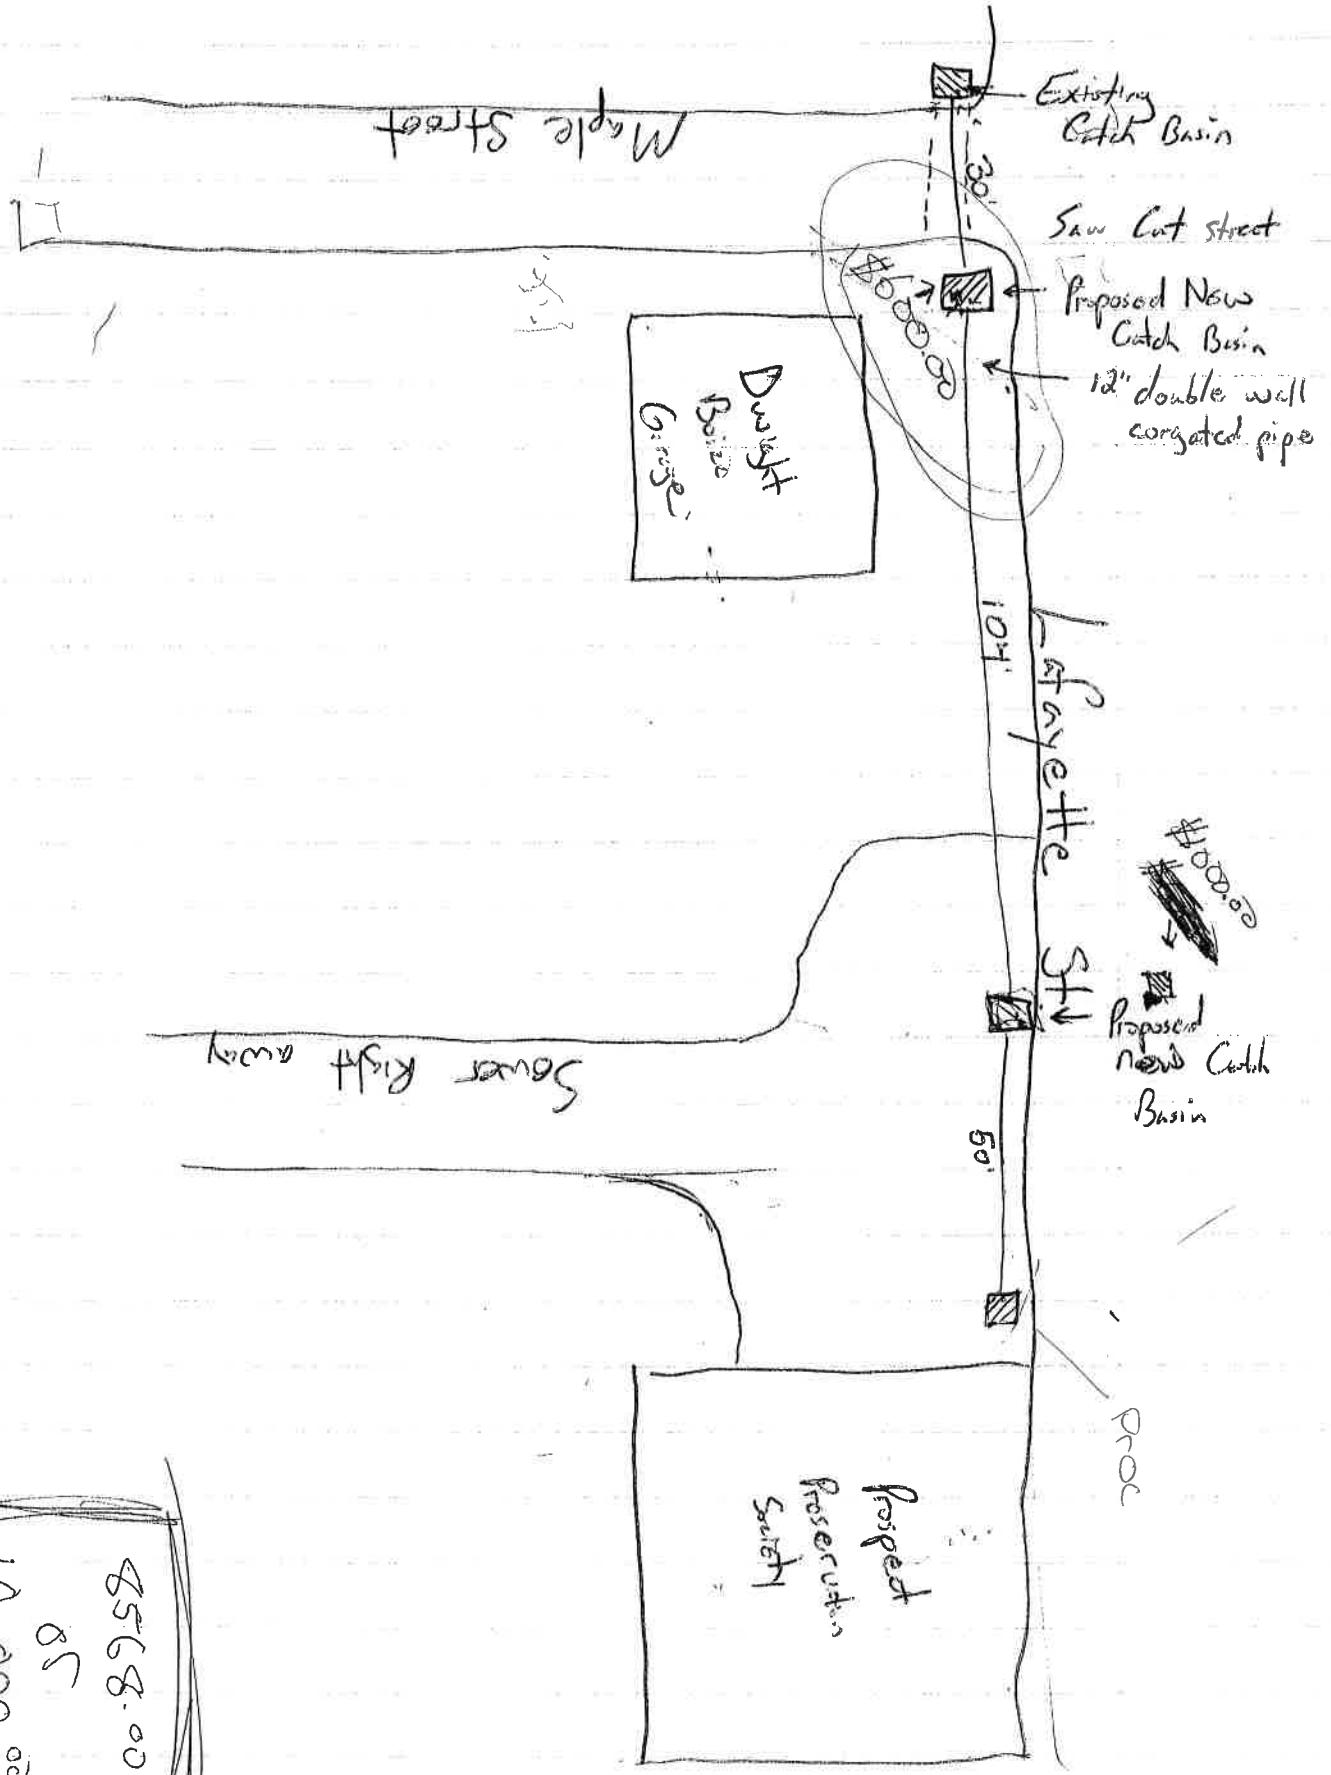 Existing
Catch Basin
Maple Street
30'
Saw Cut street
Proposed New
Catch Basin
12" double wall
corgated pipe
Dwight
Garage
104'
Lafayette St
Proposed
new Catch
Basin
Sower Right
away
50'
Prospect
Preservation
Society
8568.00